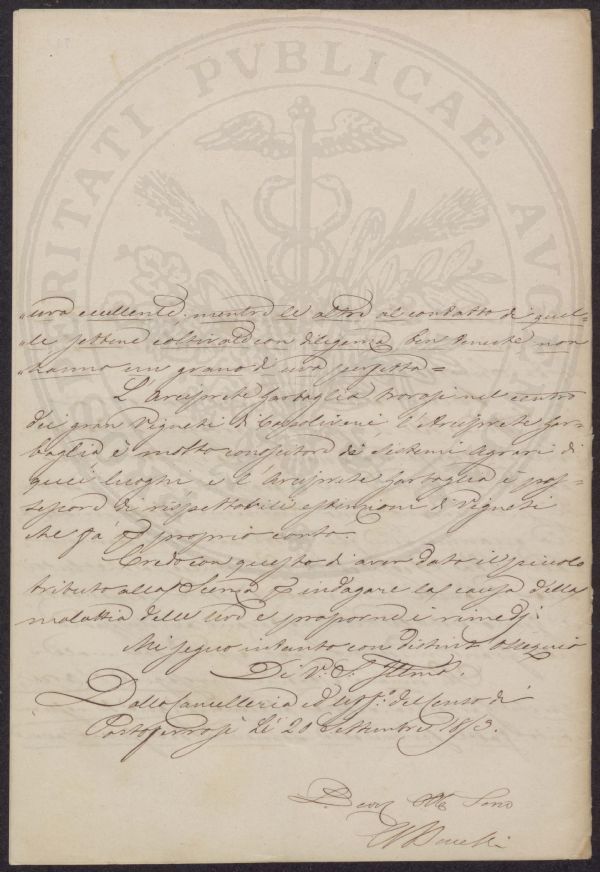 PROSPERITATI PVBLICAE AVGENDAE
„uva eccellente, mentre le altre al contatto di quel=
„le pettine coltivate con diligenza ben tenute non
„hanno un grano di uva perfetta=
L'Arciprete Gasbaglia trovasi nel centro
dei gran Vigneti di Capoliveri, l'Arciprete Gas=
baglia è molto conoscitore dei Sistemi Agrari di
quei luoghi e l'Arciprete Gasbaglia è pos=
sessore di rispettabili estensioni di Vigneti
che fà p proprio conto.
Credo con questo di aver dato il piccolo
tributo alla Scienza p indagare la causa della
malattia delle Uve e proporne i rimedj.
Mi segno intanto con distinto Ossequio
Di V.ª S. Illma.
Dalla Cancelleria ed Uff.º del Censo di
Portoferrajo Li 20 Settembre 1853.
Devmo Obb Servo